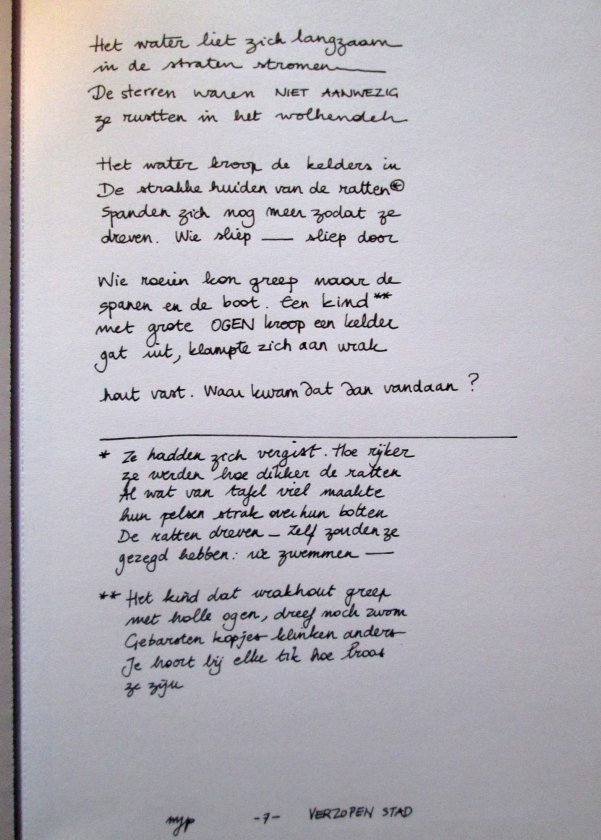 Het water liet zich langzaam
in de straten stromen
De sterren waren NIET AANWEZIG
ze rustten in het wolkendek
Het water kroop de kelders in
De strakke huiden van de ratten*
Spanden zich nog meer zodat ze
dreven. Wie sliep — sliep door
Wie roeien kon greep naar de
spanen en de boot. Een kind**
met grote OGEN kroop een kelder
gat uit, klampte zich aan wrak
hout vast. Waar kwam dat dan vandaan ?
* Ze hadden zich vergist. Hoe rijker
ze werden hoe dikker de ratten
Al wat van tafel viel maakte
hun pelsen strak over hun botten
De ratten dreven — Zelf zouden ze
gezegd hebben: we zwemmen —
** Het kind dat wrakhout greep
met holle ogen, dreef noch zwom
Gebarsten kopjes klinken anders
Je hoort bij elke tik hoe broos
ze zijn
mjp -7- VERZOPEN STAD